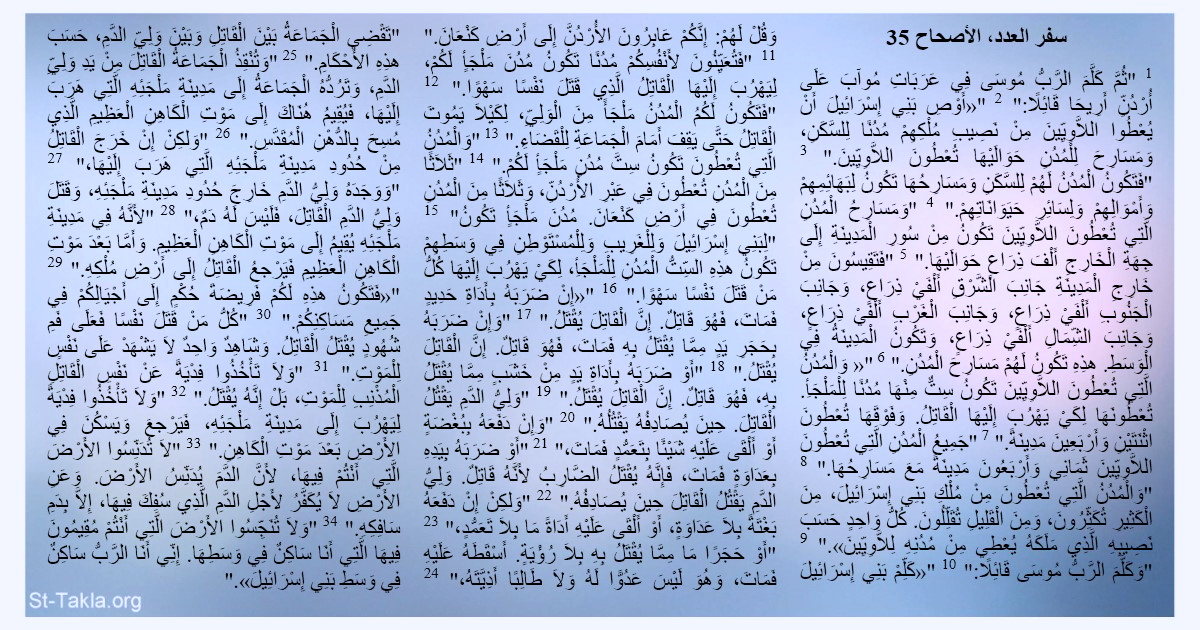 سفر العدد، الأصحاح 35
1 "ثُمَّ كَلَّمَ الرَّبُّ مُوسَى فِي عَرَبَاتِ مُوآبَ عَلَى
أُرْدُنِّ أَرِيحَا قَائِلًا:" 2 "«أَوْصِ بَنِي إِسْرَائِيلَ أَنْ
يُعْطُوا اللاَّوِيِّينَ مِنْ نَصِيبِ مُلْكِهِمْ مُدُنًا لِلسَّكَنِ،
وَمَسَارِحَ لِلْمُدُنِ حَوَالَيْهَا تُعْطُونَ اللاَّوِيِّينَ." 3
"فَتَكُونُ الْمُدُنُ لَهُمْ لِلسَّكَنِ وَمَسَارِحُهَا تَكُونُ لِبَهَائِمِهِمْ
وَأَمْوَالِهِمْ وَلِسَائِرِ حَيَوَانَاتِهِمْ." 4 "وَمَسَارِحُ الْمُدُنِ
الَّتِي تُعْطُونَ اللاَّوِيِّينَ تَكُونُ مِنْ سُورِ الْمَدِينَةِ إِلَى
جِهَةِ الْخَارِجِ أَلْفَ ذِرَاعٍ حَوَالَيْهَا." 5 "فَتَقِيسُونَ مِنْ
خَارِجِ الْمَدِينَةِ جَانِبَ الشَّرْقِ أَلْفَيْ ذِرَاعٍ، وَجَانِبَ
الْجَنُوبِ أَلْفَيْ ذِرَاعٍ، وَجَانِبَ الْغَرْبِ أَلْفَيْ ذِرَاعٍ،
وَجَانِبَ الشِّمَالِ أَلْفَيْ ذِرَاعٍ، وَتَكُونُ الْمَدِينَةُ فِي
الْوَسَطِ. هذِهِ تَكُونُ لَهُمْ مَسَارِحَ الْمُدُنِ." 6 "« وَالْمُدُنُ
الَّتِي تُعْطُونَ اللاَّوِيِّينَ تَكُونُ سِتٌّ مِنْهَا مُدُنًا لِلْمَلْجَأِ.
تُعْطُونَهَا لِكَيْ يَهْرُبَ إِلَيْهَا الْقَاتِلُ. وَفَوْقَهَا تُعْطُونَ
اثْنَتَيْنِ وَأَرْبَعِينَ مَدِينَةً." 7 "جَمِيعُ الْمُدُنِ الَّتِي تُعْطُونَ
اللاَّوِيِّينَ ثَمَانِي وَأَرْبَعُونَ مَدِينَةً مَعَ مَسَارِحِهَا." 8
"وَالْمُدُنُ الَّتِي تُعْطُونَ مِنْ مُلْكِ بَنِي إِسْرَائِيلَ، مِنَ
الْكَثِيرِ تُكَثِّرُونَ، وَمِنَ الْقَلِيلِ تُقَلِّلُونَ. كُلُّ وَاحِدٍ حَسَبَ
نَصِيبِهِ الَّذِي مَلَكَهُ يُعْطِي مِنْ مُدُنِهِ لِلاَّوِيِّينَ»." 9
"وَكَلَّمَ الرَّبُّ مُوسَى قَائِلًا:" 10 "«كَلِّمْ بَنِي إِسْرَائِيلَ
وَقُلْ لَهُمْ: إِنَّكُمْ عَابِرُونَ الأُرْدُنَّ إِلَى أَرْضِ كَنْعَانَ."
11 "فَتُعَيِّنُونَ لأَنْفُسِكُمْ مُدُنًا تَكُونُ مُدُنَ مَلْجَأٍ لَكُمْ،
لِيَهْرُبَ إِلَيْهَا الْقَاتِلُ الَّذِي قَتَلَ نَفْسًا سَهْوًا." 12
"فَتَكُونُ لَكُمُ الْمُدُنُ مَلْجَأً مِنَ الْوَلِيِّ، لِكَيْلاَ يَمُوتَ
الْقَاتِلُ حَتَّى يَقِفَ أَمَامَ الْجَمَاعَةِ لِلْقَضَاءِ." 13 "وَالْمُدُنُ
الَّتِي تُعْطُونَ تَكُونُ سِتَّ مُدُنِ مَلْجَأٍ لَكُمْ." 14 "ثَلاَثًا
مِنَ الْمُدُنِ تُعْطُونَ فِي عَبْرِ الأُرْدُنِّ، وَثَلاَثًا مِنَ الْمُدُنِ
تُعْطُونَ فِي أَرْضِ كَنْعَانَ. مُدُنَ مَلْجَأٍ تَكُونُ" 15
"لِبَنِي إِسْرَائِيلَ وَلِلْغَرِيبِ وَلِلْمُسْتَوْطِنِ فِي وَسَطِهِمْ
تَكُونُ هذِهِ السِّتُّ الْمُدُنِ لِلْمَلْجَأِ، لِكَيْ يَهْرُبَ إِلَيْهَا كُلُّ
مَنْ قَتَلَ نَفْسًا سَهْوًا." 16 "«إِنْ ضَرَبَهُ بِأَدَاةِ حَدِيدٍ
فَمَاتَ، فَهُوَ قَاتِلٌ. إِنَّ الْقَاتِلَ يُقْتَلُ." 17 "وَإِنْ ضَرَبَهُ
بِحَجَرِ يَدٍ مِمَّا يُقْتَلُ بِهِ فَمَاتَ، فَهُوَ قَاتِلٌ. إِنَّ الْقَاتِلَ
يُقْتَلُ." 18 "أَوْ ضَرَبَهُ بِأَدَاةِ يَدٍ مِنْ خَشَبٍ مِمَّا يُقْتَلُ
بِهِ، فَهُوَ قَاتِلٌ. إِنَّ الْقَاتِلَ يُقْتَلُ." 19 "وَلِيُّ الدَّمِ يَقْتُلُ
الْقَاتِلَ. حِينَ يُصَادِفُهُ يَقْتُلُهُ." 20 "وَإِنْ دَفَعَهُ بِبُغْضَةٍ
أَوْ أَلْقَى عَلَيْهِ شَيْئًا بِتَعَمُّدٍ فَمَاتَ،" 21 "أَوْ ضَرَبَهُ بِيَدِهِ
بِعَدَاوَةٍ فَمَاتَ، فَإِنَّهُ يُقْتَلُ الضَّارِبُ لأَنَّهُ قَاتِلٌ. وَلِيُّ
الدَّمِ يَقْتُلُ الْقَاتِلَ حِينَ يُصَادِفُهُ." 22 "وَلكِنْ إِنْ دَفَعَهُ
بَغْتَةً بِلاَ عَدَاوَةٍ، أَوْ أَلْقَى عَلَيْهِ أَدَاةً مَا بِلاَ تَعَمُّدٍ،" 23
"أَوْ حَجَرًا مَا مِمَّا يُقْتَلُ بِهِ بِلاَ رُؤْيَةٍ. أَسْقَطَهُ عَلَيْهِ
فَمَاتَ، وَهُوَ لَيْسَ عَدُوًّا لَهُ وَلاَ طَالِبًا أَذِيَّتَهُ،" 24
"تَقْضِي الْجَمَاعَةُ بَيْنَ الْقَاتِلِ وَبَيْنَ وَلِيِّ الدَّمِ، حَسَبَ
هذِهِ الأَحْكَامِ." 25 "وَتُنْقِذُ الْجَمَاعَةُ الْقَاتِلَ مِنْ يَدِ وَلِيِّ
الدَّمِ، وَتَرُدُّهُ الْجَمَاعَةُ إِلَى مَدِينَةِ مَلْجَئِهِ الَّتِي هَرَبَ
إِلَيْهَا، فَيُقِيمُ هُنَاكَ إِلَى مَوْتِ الْكَاهِنِ الْعَظِيمِ الَّذِي
مُسِحَ بِالدُّهْنِ الْمُقَدَّسِ." 26 "وَلكِنْ إِنْ خَرَجَ الْقَاتِلُ
مِنْ حُدُودِ مَدِينَةِ مَلْجَئِهِ الَّتِي هَرَبَ إِلَيْهَا،" 27
"وَوَجَدَهُ وَلِيُّ الدَّمِ خَارِجَ حُدُودِ مَدِينَةِ مَلْجَئِهِ، وَقَتَلَ
وَلِيُّ الدَّمِ الْقَاتِلَ، فَلَيْسَ لَهُ دَمٌ،" 28 "لأَنَّهُ فِي مَدِينَةِ
مَلْجَئِهِ يُقِيمُ إِلَى مَوْتِ الْكَاهِنِ الْعَظِيمِ. وَأَمَّا بَعْدَ مَوْتِ
الْكَاهِنِ الْعَظِيمِ فَيَرْجعُ الْقَاتِلُ إِلَى أَرْضِ مُلْكِهِ." 29
"«فَتَكُونُ هذِهِ لَكُمْ فَرِيضَةَ حُكْمٍ إِلَى أَجْيَالِكُمْ فِي
جَمِيعِ مَسَاكِنِكُمْ." 30 "كُلُّ مَنْ قَتَلَ نَفْسًا فَعَلَى فَمِ
شُهُودٍ يُقْتَلُ الْقَاتِلُ. وَشَاهِدٌ وَاحِدٌ لاَ يَشْهَدْ عَلَى نَفْسٍ
لِلْمَوْتِ." 31 "وَلاَ تَأْخُذُوا فِدْيَةً عَنْ نَفْسِ الْقَاتِلِ
الْمُذْنِبِ لِلْمَوْتِ، بَلْ إِنَّهُ يُقْتَلُ." 32 "وَلاَ تَأْخُذُوا فِدْيَةً
لِيَهْرُبَ إِلَى مَدِينَةِ مَلْجَئِهِ، فَيَرْجعَ وَيَسْكُنَ فِي
الأَرْضِ بَعْدَ مَوْتِ الْكَاهِنِ." 33 "لاَ تُدَنِّسُوا الأَرْضَ
الَّتِي أَنْتُمْ فِيهَا، لأَنَّ الدَّمَ يُدَنِّسُ الأَرْضَ. وَعَنِ
الأَرْضِ لاَ يُكَفَّرُ لأَجْلِ الدَّمِ الَّذِي سُفِكَ فِيهَا، إِلاَّ بِدَمِ
سَافِكِهِ." 34 "وَلاَ تُنَجِّسُوا الأَرْضَ الَّتِي أَنْتُمْ مُقِيمُونَ
فِيهَا الَّتِي أَنَا سَاكِنٌ فِي وَسَطِهَا. إِنِّي أَنَا الرَّبُّ سَاكِنٌ
فِي وَسَطِ بَنِي إِسْرَائِيلَ»."
St-Takla.org